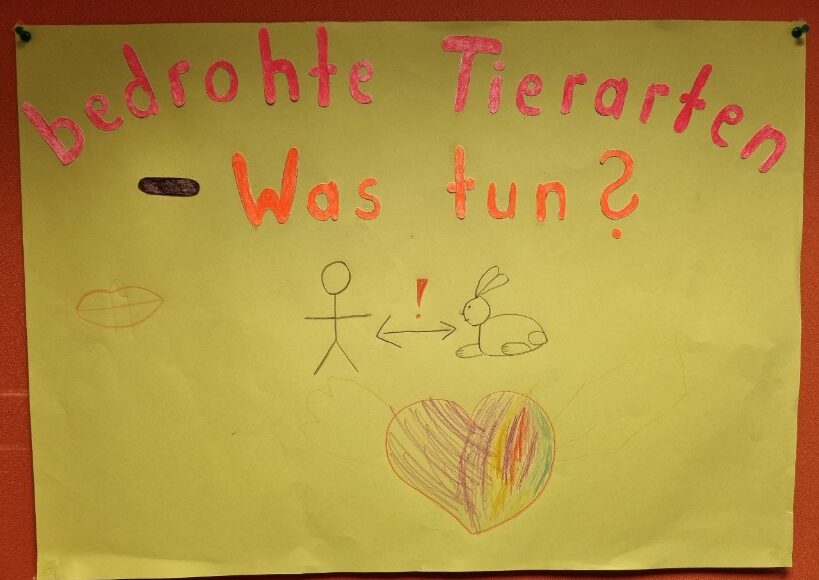 bedrohte Tierarten
- Was tun?
!